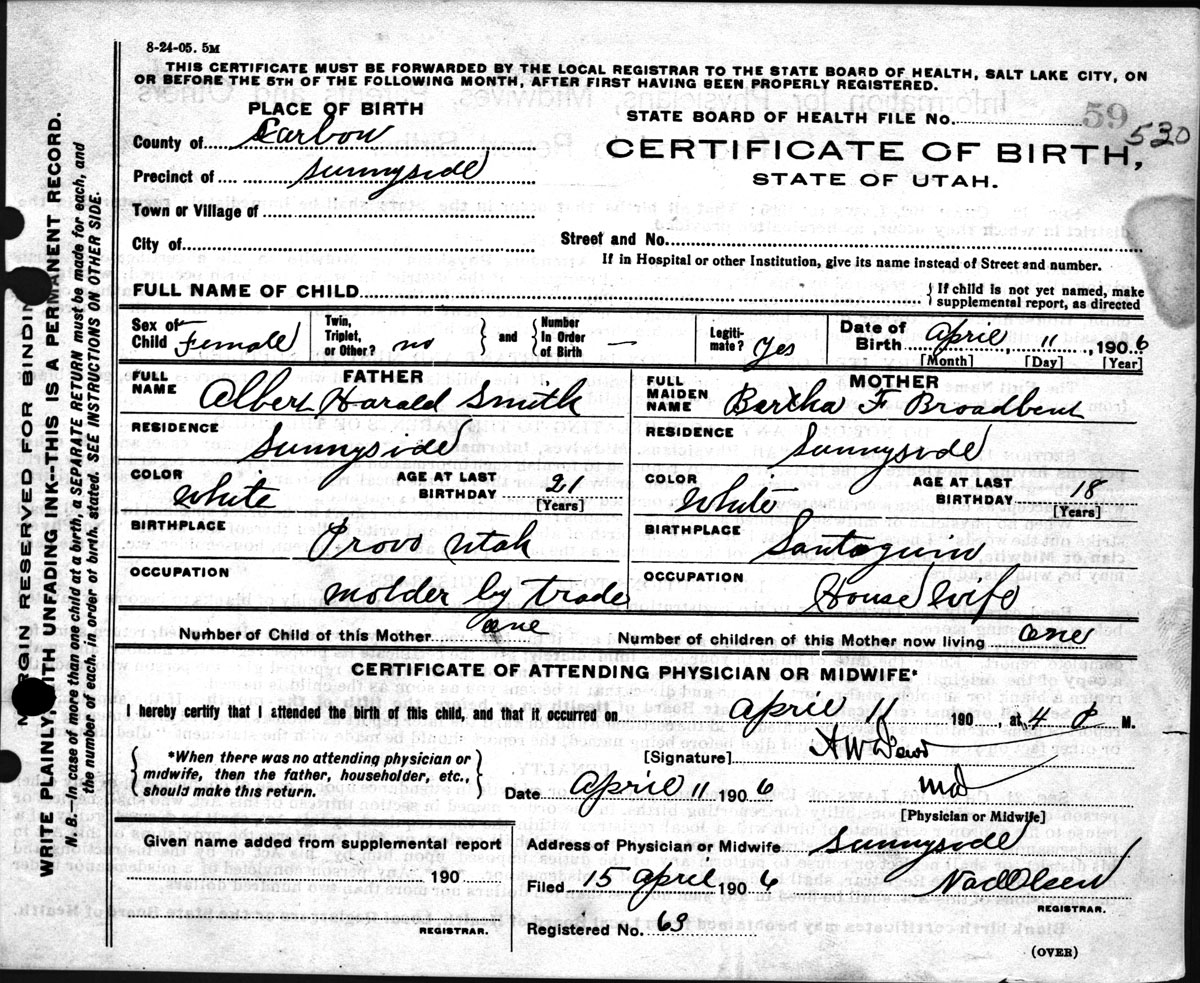 8-24-05. 5M
THIS CERTIFICATE MUST BE FORWARDED BY THE LOCAL REGISTRAR TO THE STATE BOARD OF HEALTH, SALT LAKE CITY, ON
OR BEFORE THE 5TH OF THE FOLLOWING MONTH, AFTER FIRST HAVING BEEN PROPERLY REGISTERED.
PLACE OF BIRTH
STATE BOARD OF HEALTH FILE No. 59 530
County of Carbon
CERTIFICATE OF BIRTH,
STATE OF UTAH.
Precinct of Sunnyside
Town or Village of
City of
Street and No.
If in Hospital or other Institution, give its name instead of Street and number.
FULL NAME OF CHILD
{ If child is not yet named, make
supplemental report, as directed
Sex of Child Female
Twin, Triplet, or Other? no } and { Number in Order of Birth —
Legiti-mate? Yes
Date of Birth April, 11, 1906
[Month] [Day] [Year]
FATHER
FULL NAME Albert Harald Smith
MOTHER
FULL MAIDEN NAME Bertha F Broadbent
RESIDENCE Sunnyside
RESIDENCE Sunnyside
COLOR White AGE AT LAST BIRTHDAY 21 [Years]
COLOR White AGE AT LAST BIRTHDAY 18 [Years]
BIRTHPLACE Provo Utah
BIRTHPLACE Santaquin
OCCUPATION molder by trade
OCCUPATION House wife
Number of Child of this Mother one
Number of children of this Mother now living one
CERTIFICATE OF ATTENDING PHYSICIAN OR MIDWIFE*
I hereby certify that I attended the birth of this child, and that it occurred on April 11 190 , at 4 M.
{ *When there was no attending physician or
midwife, then the father, householder, etc.,
should make this return. }
[Signature]
Date April 11 1906 md
[Physician or Midwife]
Given name added from supplemental report
190
REGISTRAR.
Address of Physician or Midwife Sunnyside
Filed 15 April 1906 Olsen
REGISTRAR.
Registered No. 63
(OVER)
MARGIN RESERVED FOR BINDING
WRITE PLAINLY, WITH UNFADING INK--THIS IS A PERMANENT RECORD.
N. B.—In case of more than one child at a birth, a SEPARATE RETURN must be made for each, and
the number of each, in order of birth, stated. SEE INSTRUCTIONS ON OTHER SIDE.